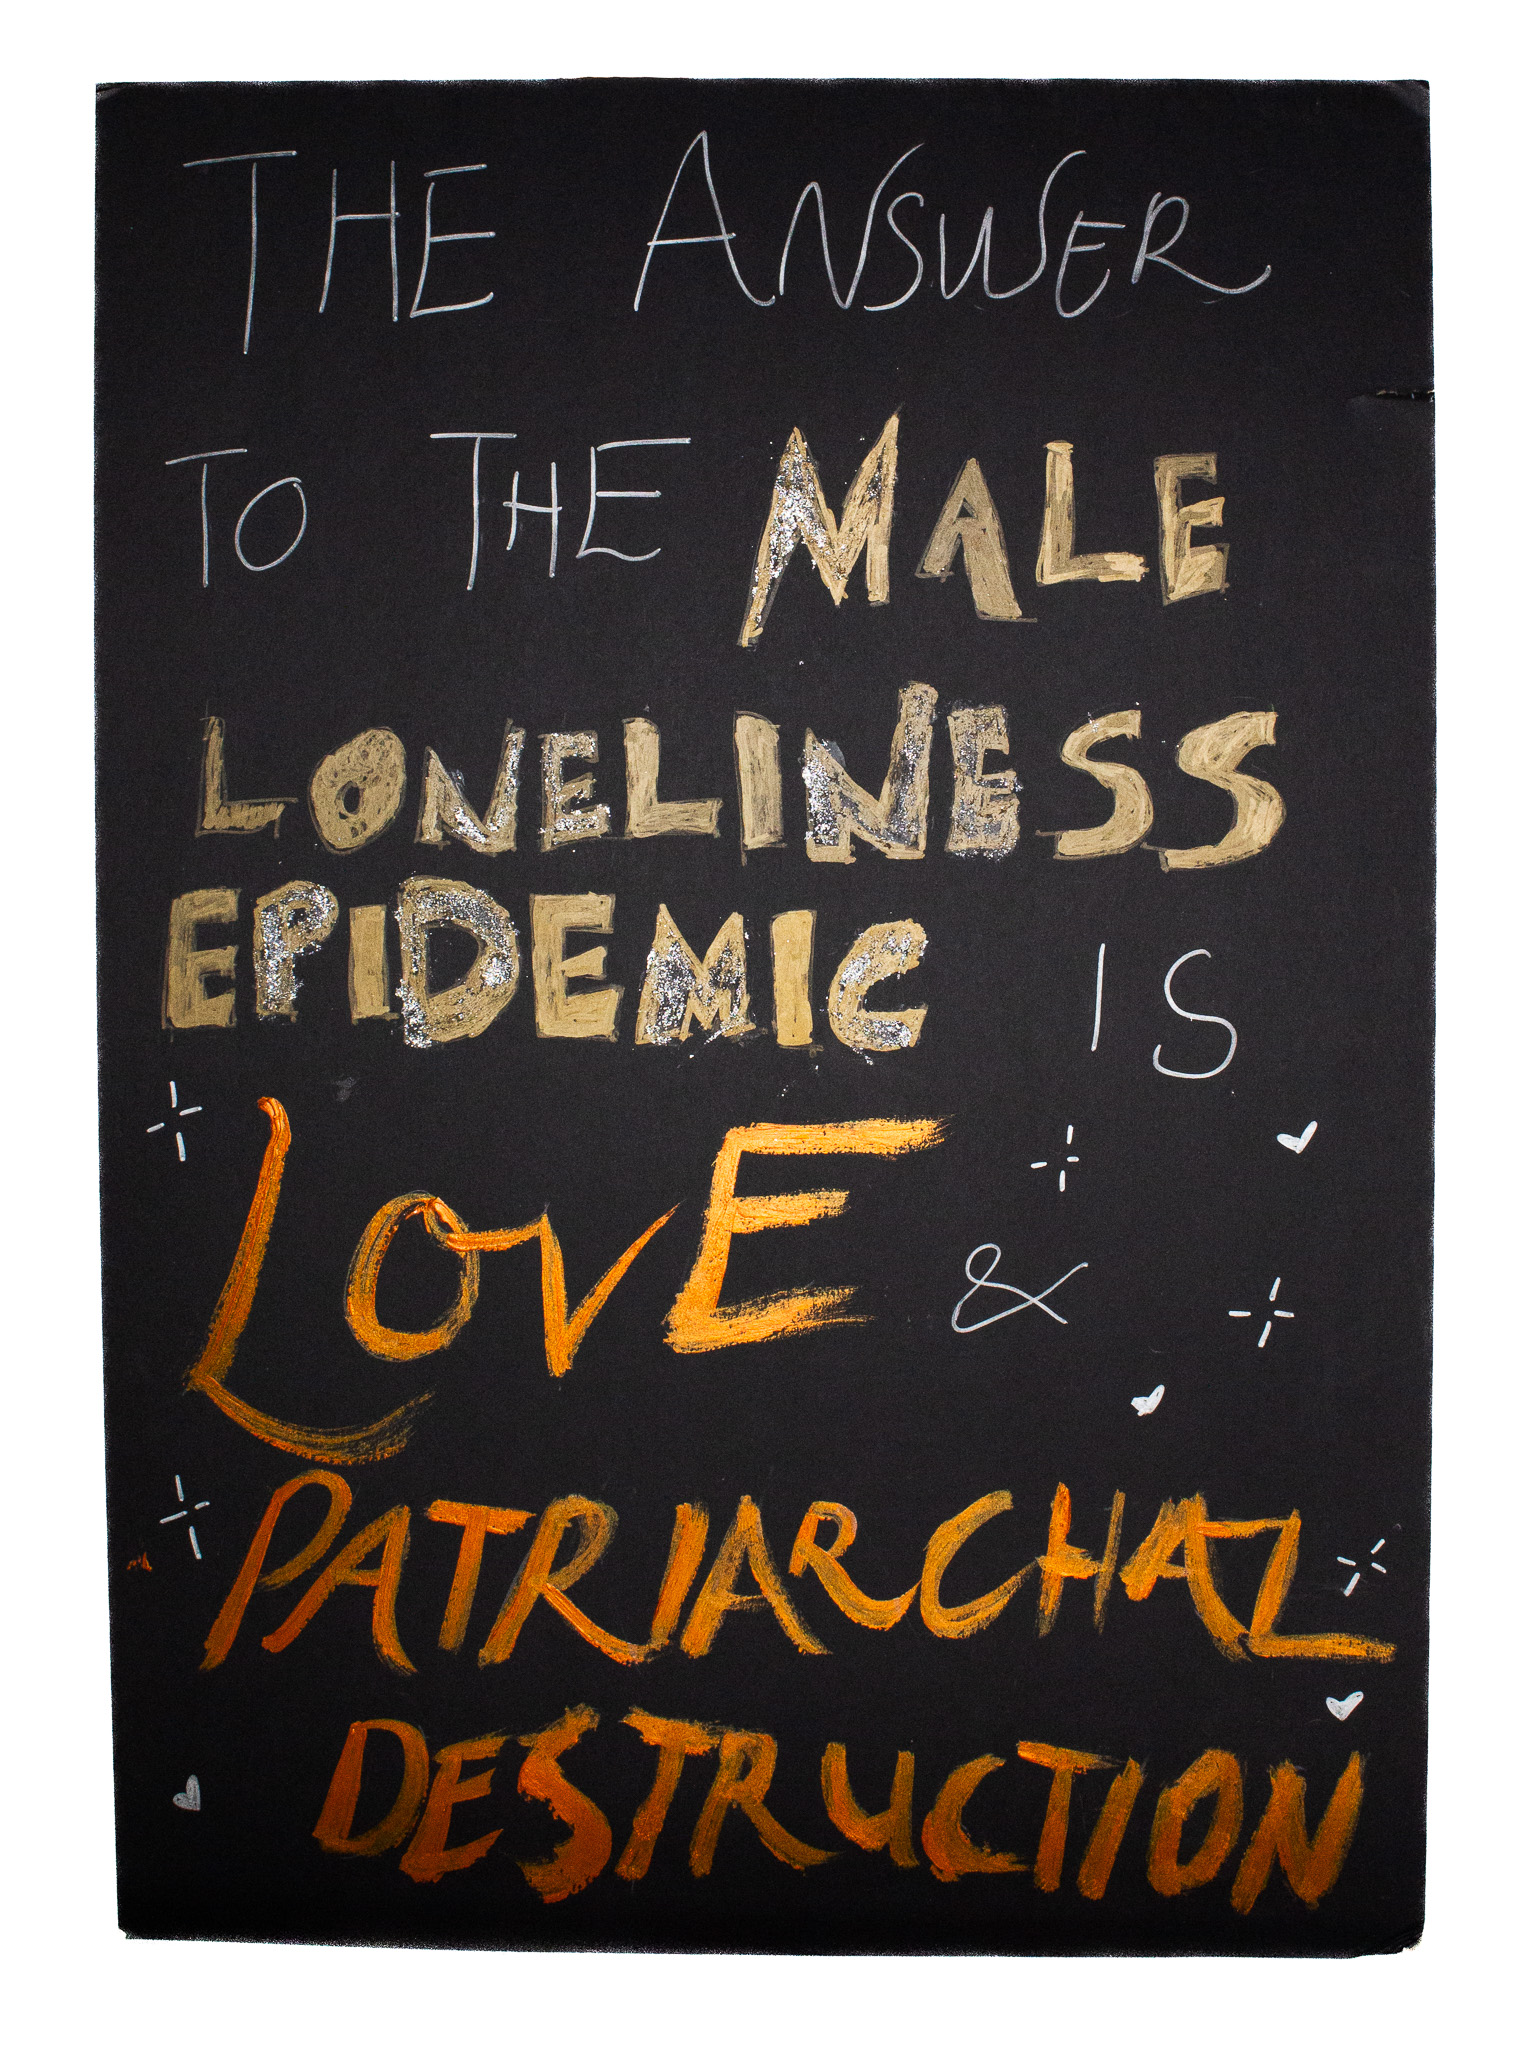 THE ANSWER
TO THE MALE
LONELINESS
EPIDEMIC IS
LOVE &
PATRIARCHAL
DESTRUCTION